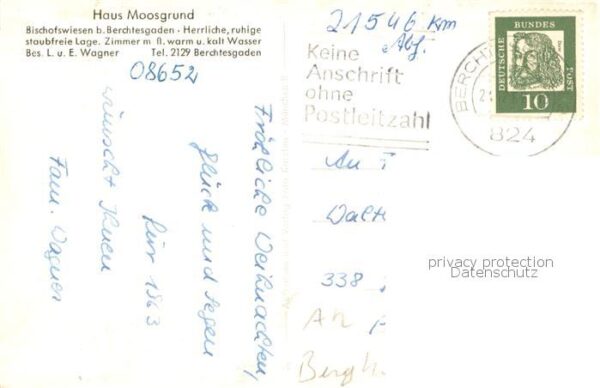 Haus Moosgrund
Bischofswiesen b. Berchtesgaden · Herrliche, ruhige
staubfreie Lage. Zimmer m fl. warm u. kalt Wasser
Bes. L. u. E. Wagner Tel. 2129 Berchtesgaden
08652
Fröhliche Weihnachten,
Glück und Segen
für 1963
wünscht Ihnen
Fam. Wagner
21546 Km
Abf.
Keine
Anschrift
ohne
Postleitzahl
BERCHT
824
DEUTSCHE BUNDES POST
10
An
Walt
338
An
Bergh
privacy protection
Datenschutz